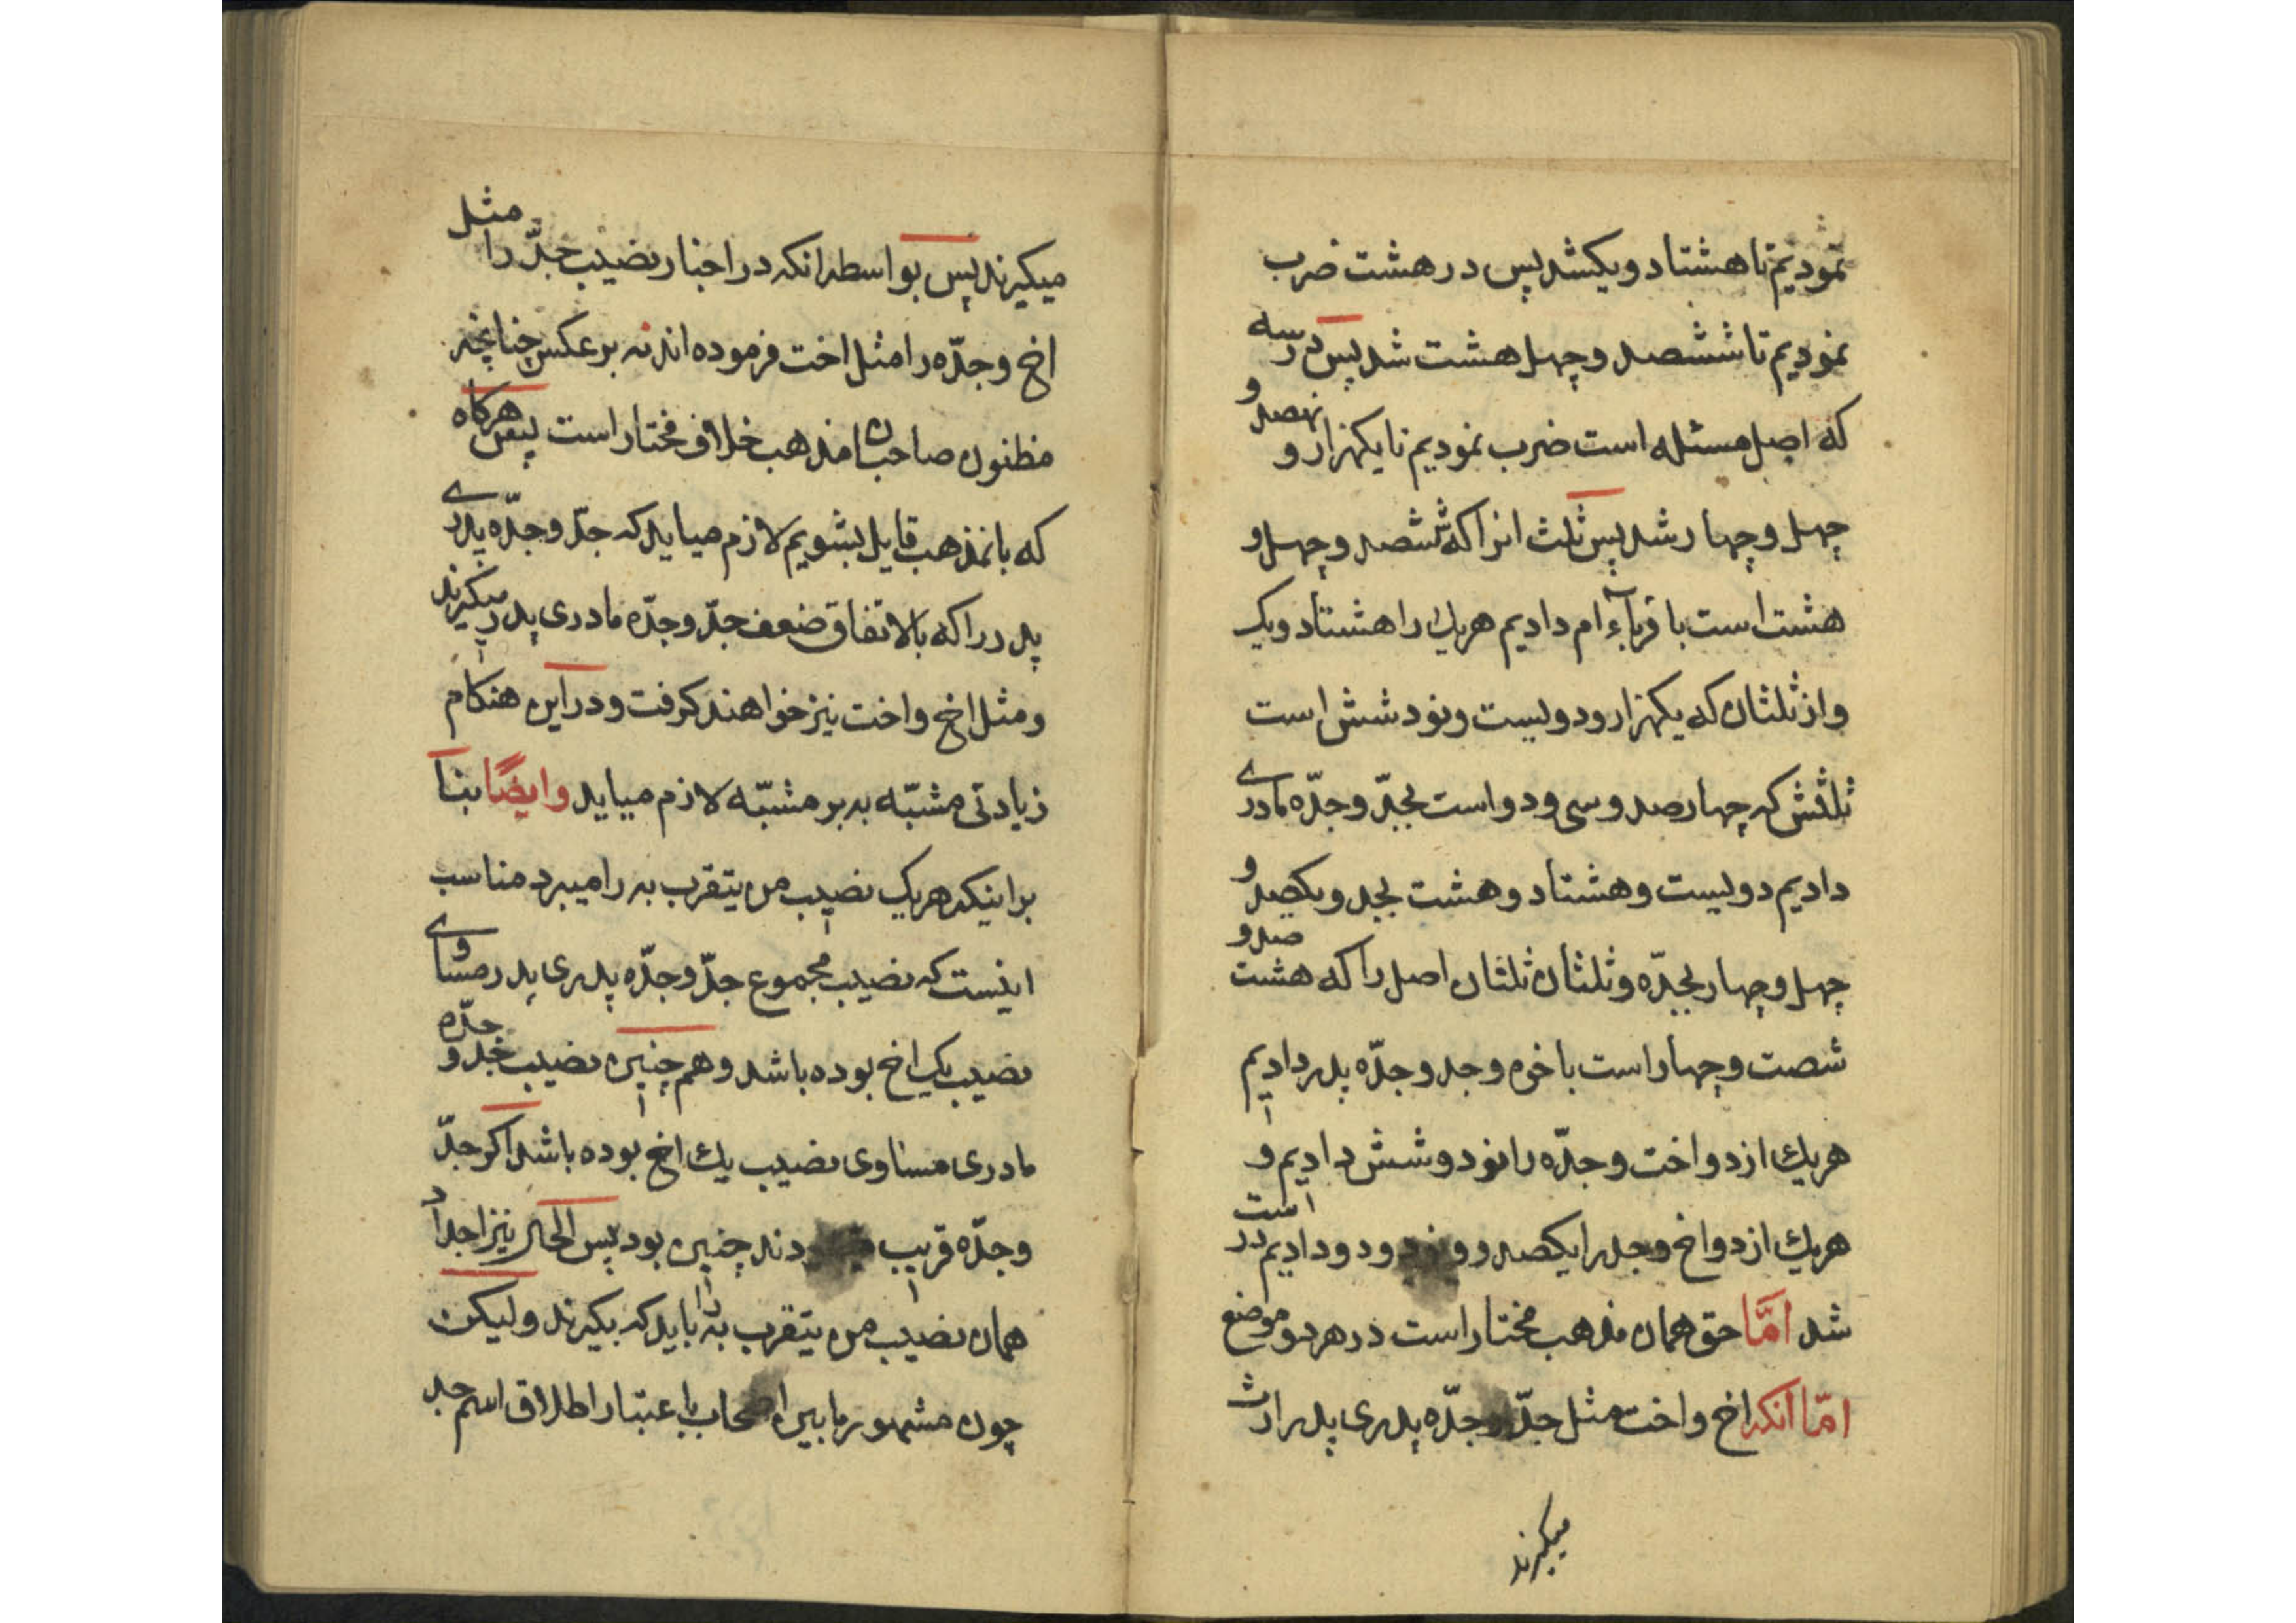 نمودیم تا هشتاد و یکشد پس در هشت ضرب
نمودیم تا ششصد و چهل هشت شد پس در سه
که اصل مسئله است ضرب نمودیم تا یکهزار و نهصد و
چهل و چهار شد پس ثلث انرا که ششصد و چهل و
هشت است باقرباء ام دادیم هریك را هشتاد و یک
و از ثلثان که یکهزار و دولیست و نود شش است
ثلثش که چهار صد و سی و دو است بجدّ و جدّه مادری
دادیم دولیست و هشتاد و هشت بجد و یکصد و
چهل و چهار بجدّه و ثلثان ثلثان اصل را که هشت صد و
شصت و چهار است باخوه و جد و جدّه پدر دادیم
هریك از دو اخت و جدّه را نود و شش دادیم و
هریك از دو اخ و جد را یکصد و نود و دو دادیم در است
شد امّا حق همان مذهب مختار است در هر دو موضع
امّا انکه اخ و اخت مثل جدّ و جدّه پدری پدر ارث
میکیرند
میکیرند پس بواسطه انکه در اخبار نصیب جدّ را مثل
اخ و جدّه را مثل اخت فرموده اند نه بر عکس چنانچه
مظنون صاحب ان مذهب خلاف مختار است پس هرکاه
که بانمذهب قایل بشویم لازم میاید که جدّ و جدّه پدری
پدر را که بالاتفاق ضعف جدّ و جدّه مادری پدر میکیرند
و مثل اخ و اخت نیز خواهند کرفت و در این هنکام
زیادتی مشبّه به بر مشبّه لازم میاید وایضًا بنا
بر اینکه هریک نصیب من یتقرب به را میبرد مناسب
اینست که نصیب مجموع جدّ و جدّه پدری پدر مساوی
نصیب یک اخ بوده باشد و هم چنین نصیب جد و جدّه
مادری مساوی نصیب یك اخ بوده باشد اکر جدّ
و جدّه قریب دند چنین بود پس الحال نیز اجداد
همان نصیب من یتقرب به را باید که بکیرند ولیکن
چون مشهور ما بین اصحاب باعتبار اطلاق اسم جد